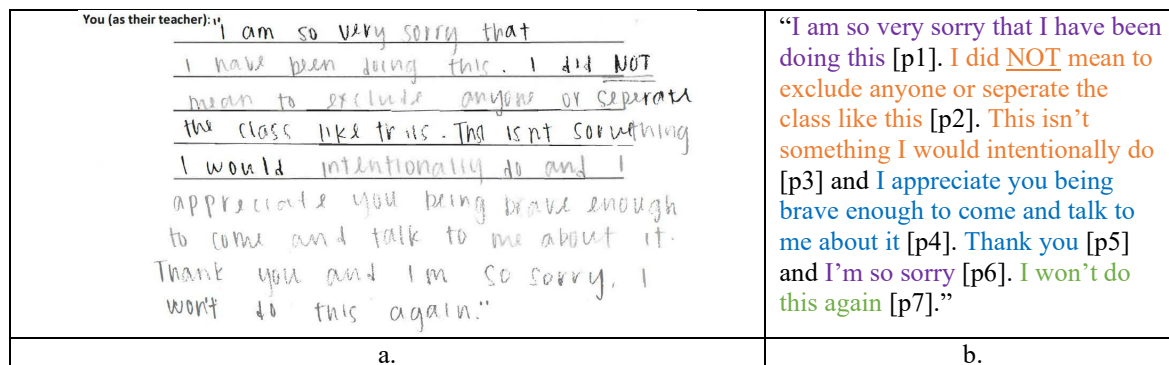 You (as their teacher): "
"I am so very sorry that
I have been doing this. I did NOT
mean to exclude anyone or seperate
the class like this. This isnt something
I would intentionally do and I
appreciate you being brave enough
to come and talk to me about it.
Thank you and I'm so sorry. I
won't do this again."
a.
“I am so very sorry that I have been
doing this [p1]. I did NOT mean to
exclude anyone or seperate the
class like this [p2]. This isn’t
something I would intentionally do
[p3] and I appreciate you being
brave enough to come and talk to
me about it [p4]. Thank you [p5]
and I’m so sorry [p6]. I won’t do
this again [p7].”
b.